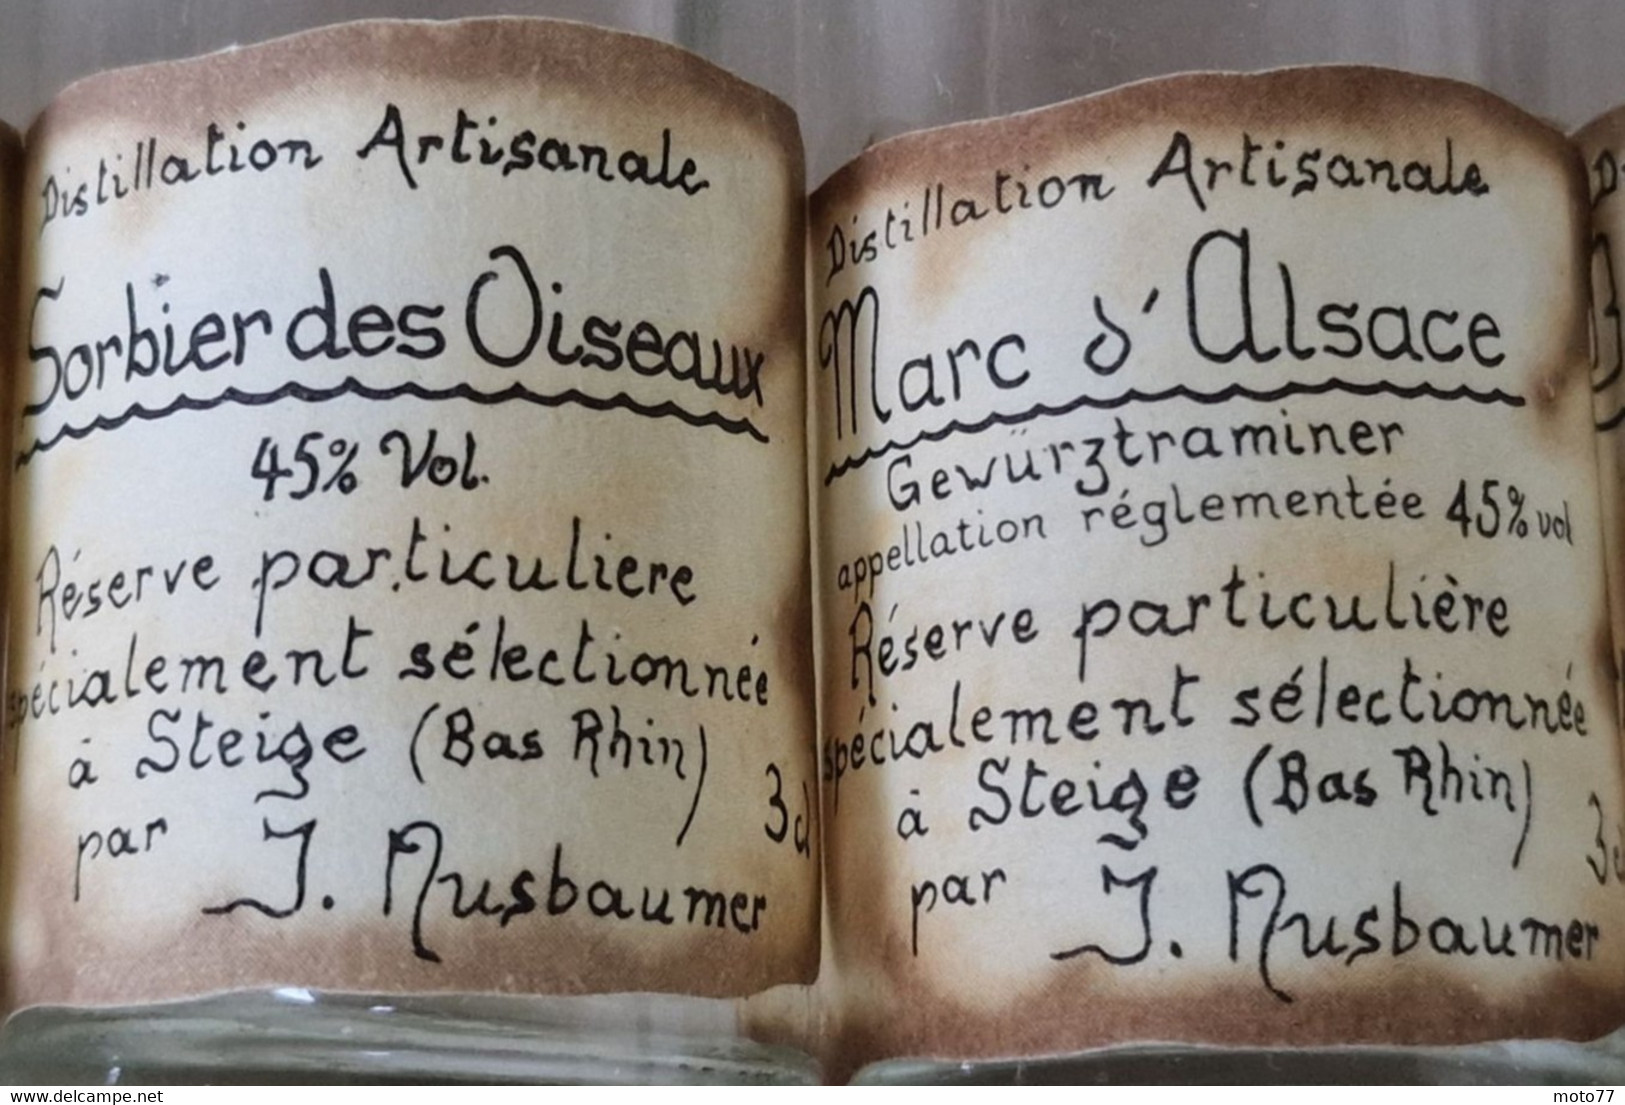 Distillation Artisanale
Sorbier des Oiseaux
45% Vol.
Réserve particuliere
spécialement sélectionnée
à Steige (Bas Rhin)
3cl
par J. Nusbaumer
Distillation Artisanale
Marc d'Alsace
Gewürztraminer
appellation réglementée 45% vol
Réserve particulière
spécialement sélectionnée
à Steige (Bas Rhin)
par J. Nusbaumer
www.delcampe.net
moto77